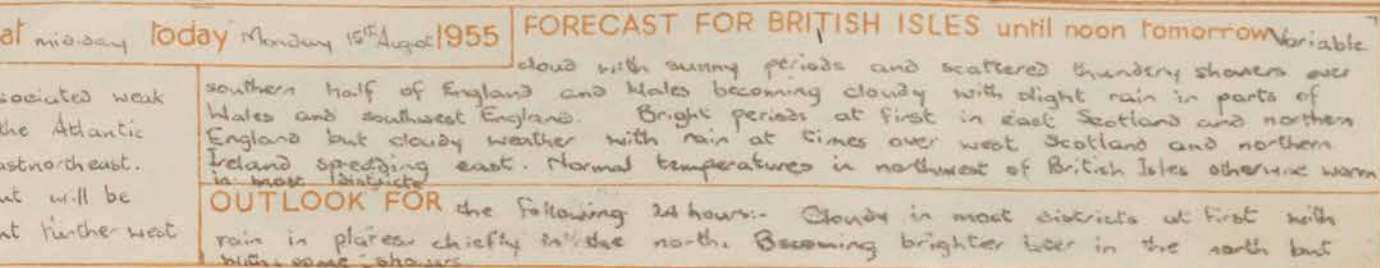 at midday today Monday 15th August 1955
sociated weak
the Atlantic
astnortheast.
ut will be
nt further west
FORECAST FOR BRITISH ISLES until noon tomorrow Variable
cloud with sunny periods and scattered thundery showers over
southern half of England and Wales becoming cloudy with slight rain in parts of
Wales and southwest England. Bright periods at first in east Scotland and northern
England but cloudy weather with rain at times over west Scotland and northern
Ireland spredding east. Normal temperatures in northwest of British Isles otherwise warm
in most districts
OUTLOOK FOR the following 24 hours:- Cloudy in most districts at first with
rain in places chiefly in the north. Becoming brighter later in the north but
with some showers